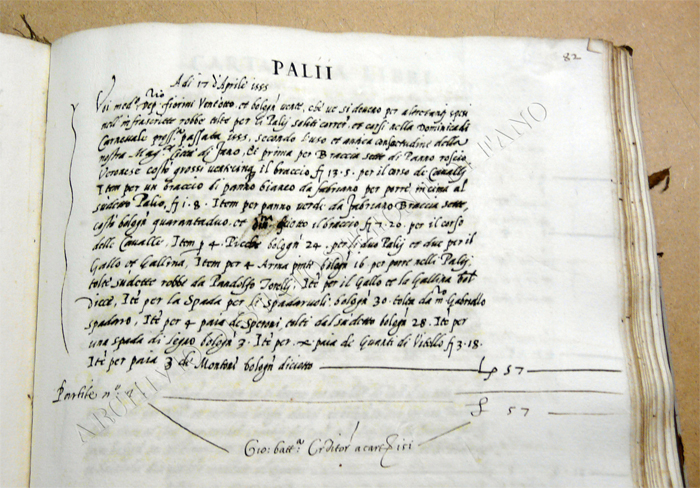 82
PALII
Adi 17 d'Aprile 1555
Vii med.o Dep. fiorini Vent'otto et bologn. vente, che ve si devono per altretanti spesi
nell'infrascritte robbe tolte per li Palij soliti correr, et corsi nella Dominica di
Carnevale pross.a passata 1555. secondo l'uso et antica consuetudine della
nostra Mag.ca Città di Fano, Et prima per Braccia sette di Panno roscio
Veronese costò grossi il braccio, fj 13. 5. per il corso de Cavalli
Item per un braccio di panno bianco da fabriano per porre in cima al
sudetto Palio, fj 1. 8. Item per panno verde da fabriano Braccia sette,
costò bologn. quarantaduo, et il braccio fj 7. 20. per il corso
delle Cavalle, Item p 4. bologn 24. per li duo Palij et due per il
Gallo et Gallina, Item per 4 Arma pinte bologn 16 per porre nella Palij
tolte sudette robbe da Pandolfo Torelli; Itē per il Gallo et la Gallina bol
Diece, Itē per la Spada per li Spadaruoli bologn 30. tolta da m.o Gabriello
spadaro, Itē per 4 paia de Speroni tolti dal sudetto bologn 28. Itē per
una spada di legno bologn 2. Itē per paia de Guanti di Vitello fj 3. 18.
Itē per paia 3 de Montoni bologn diciotto £ 57
Partite n.o £ 57
Gio: batt.a
ARCHIVIO DI FANO